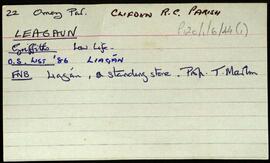 22 Omey Par. CLIFDEN R.C. PARISH
P120/1/6/44(i)
LEAGAUN
Griffith Low Life.
O.S. LIST '86 LIAGÁN
FNB Liagán, a standing stone. Prof. T.